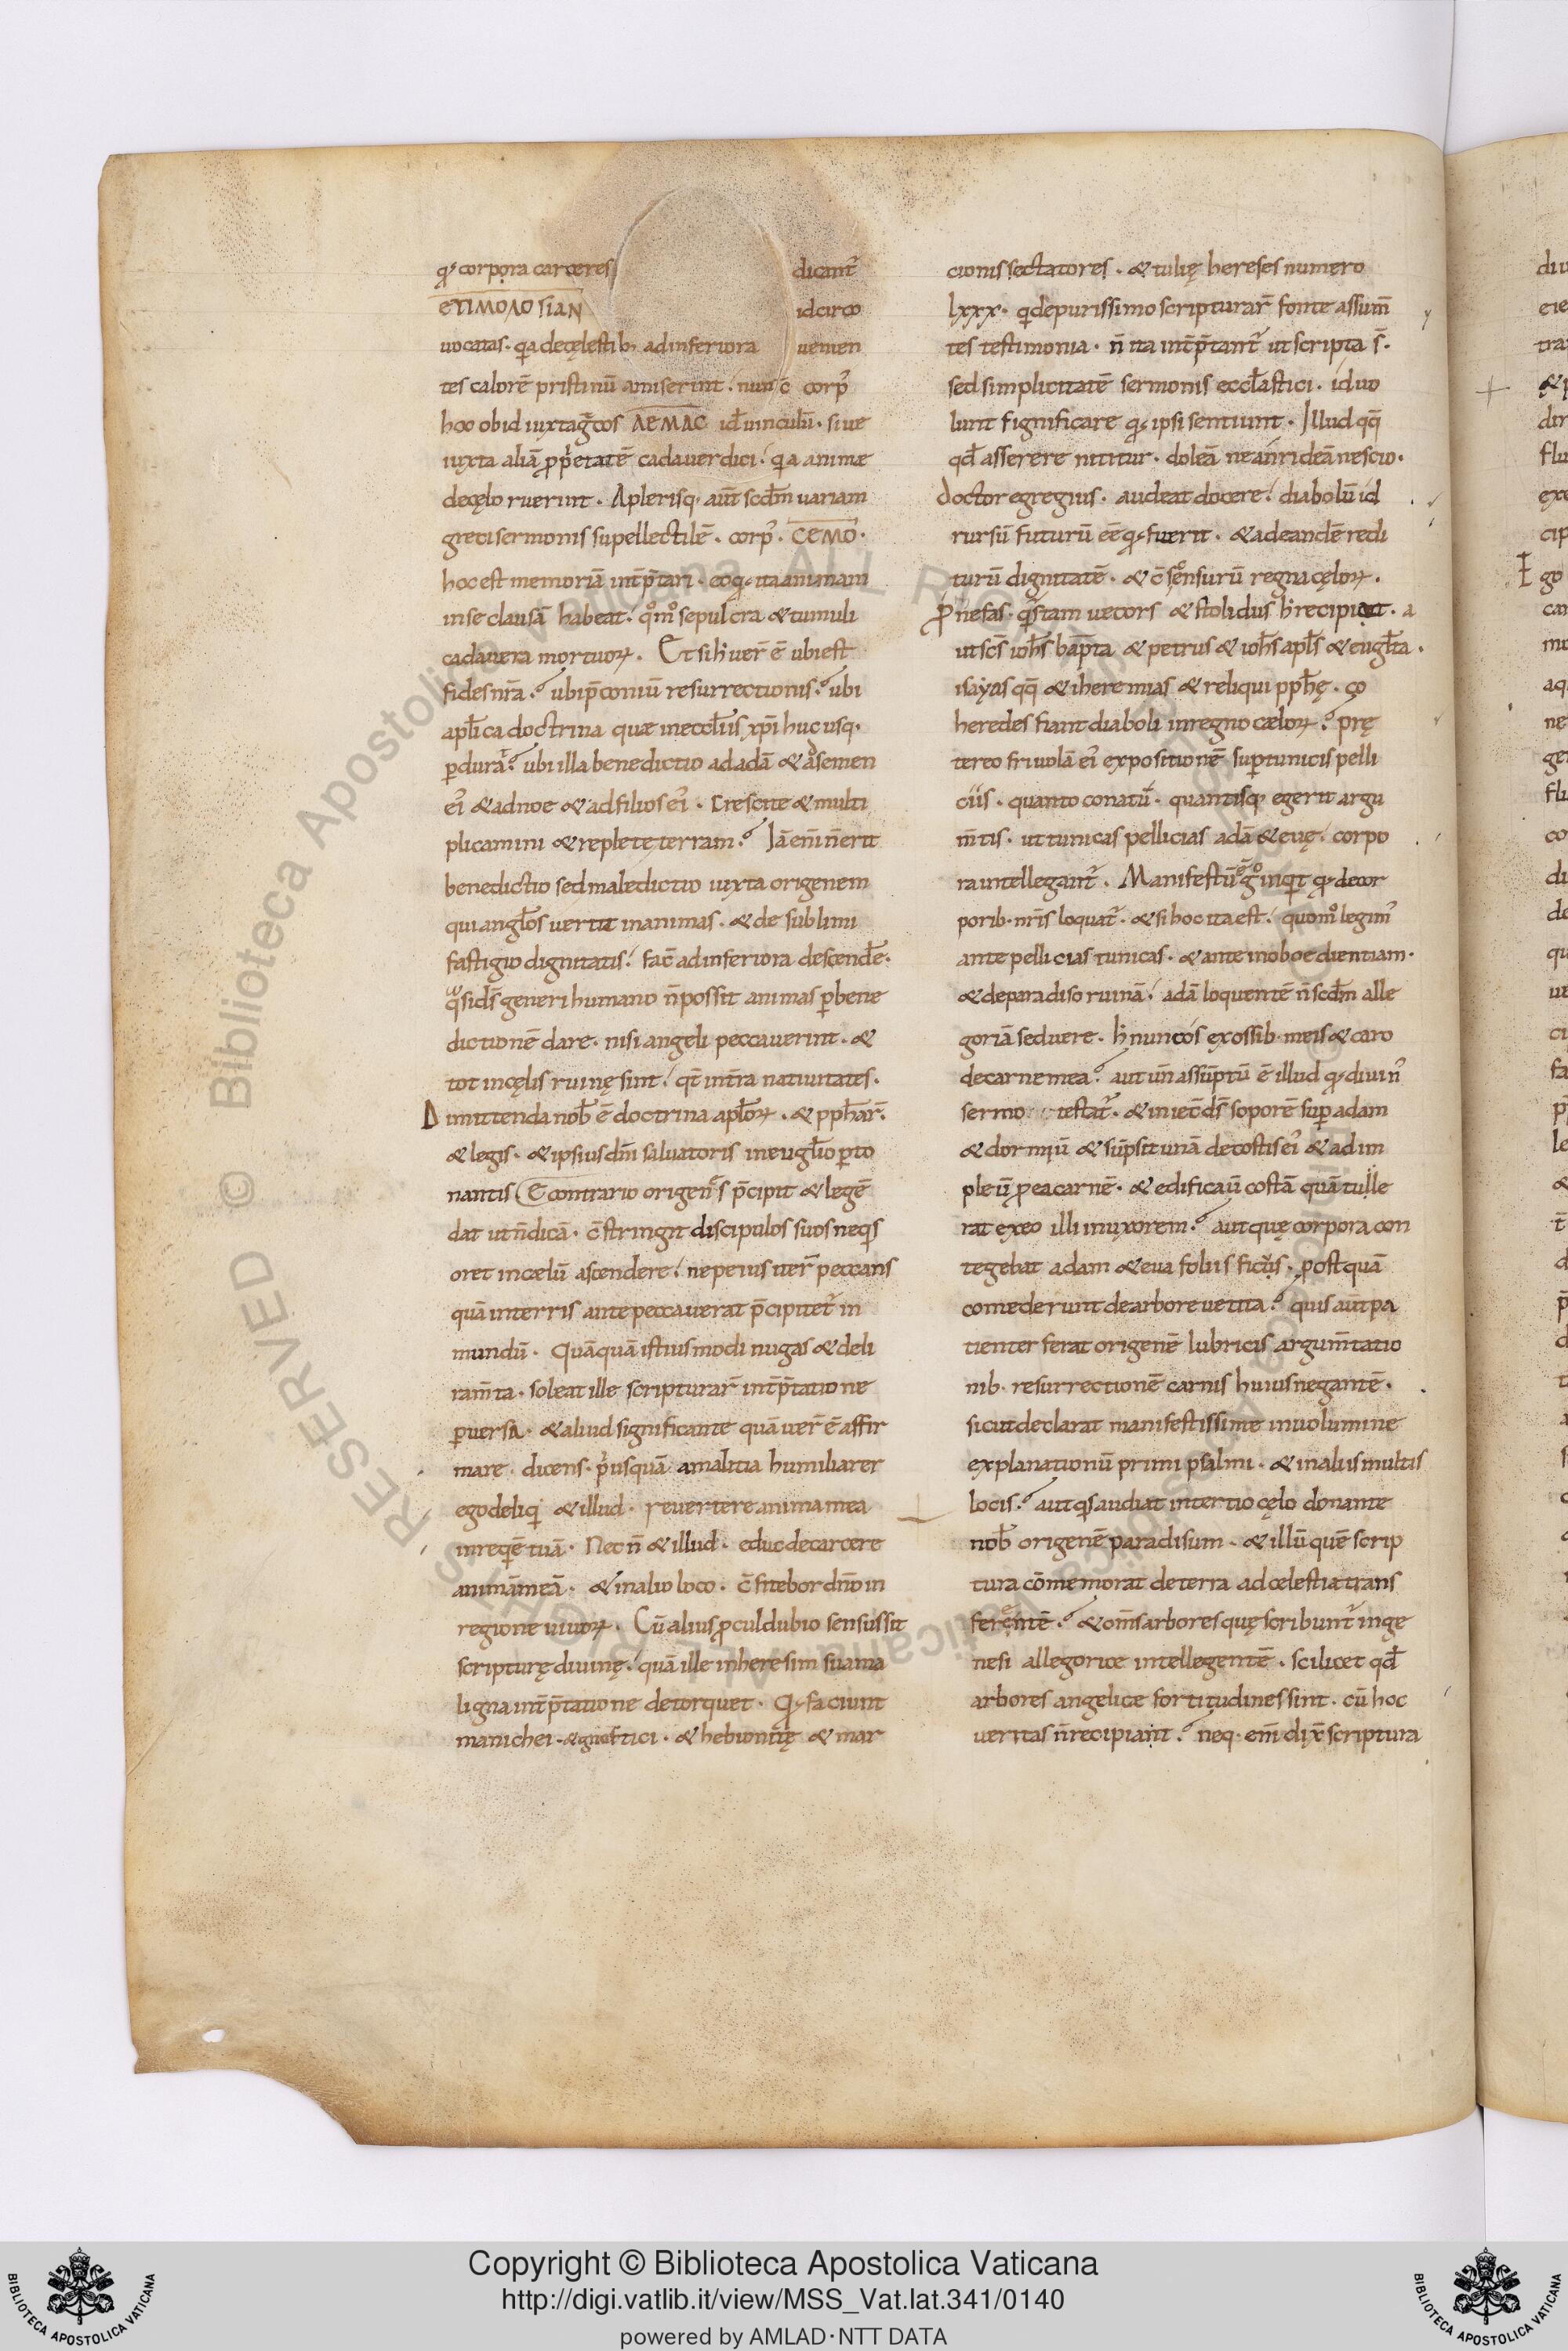 q corpora carceres dicant᷑
ETIMOΛOSIAN idcirco
uocatas· q̇a decęlestib; ad inferiora uenien
tes calorē pristinū amiserint! nunc̄ corp᷒
hoc ob id iuxta gr̄cos ΔEMAC id̄ uinculū· siue
iuxta aliā ꝓp̄etatē cadauer dici! q̇a animæ
decęlo ruerunt. A plerisq; aut̄ scdm̄ uariam
greci sermonis supellectilē· corp᷒· CEMO·
hoc est memoriā int̄p̄tari· eo q ita animam
inse clausā habeat! qͦm̊ sepulcra & tumuli
cadauera mortuoꝝ. Et si h̄ uer̄ ē ubi est
fides nr̄a? ubi p̄coniū resurrectionis? ubi
apl̄ica doctrina quæ in eccl̄iis xp̄i huc usq;
ꝑdurat? ubi illa benedictio ad adā & ad semen
ei᷒ & ad noe & ad filios ei᷒· Crescite & multi
plicamini & replete terram? Iā eni n̄ erit
benedictio sed maledictio iuxta origenem
qui angl̄os uertit in animas. & de sublimi
fastigio dignitatis! fac̄ ad inferiora descende᷑·
q̇si ds̄ generi humano n̄ possit animas ꝑ bene
dictionē dare· nisi angeli peccauerint· &
tot in cęlis ruinę sint! qt̄ int̄ra natiuitates·
Dimittenda nob̄ ē doctrina apl̄oꝝ· & pph̄ar᷑·
& legis· & ipsius dm̄ saluatoris in eugl̄io ꝑto
nantis E contrario origen᷒s p̄cipit & legē
dat ut n̄ dicā· c̄stringit discipulos suos neq̇s
oret in cælū ascendere! ne peius iter᷑ peccans
quā in terris ante peccauerat p̄cipitet᷑ in
mundū· Quāquā istiusmodi nugas & deli
ram̄ta· soleat ille scripturar᷑ int̄p̄tatione
ꝑuersa· & aliud significante quā uer᷑ ē affir
mare· dicens· p̍usquā a malitia humiliarer
ego deliqi & illud· reuertere anima mea
in req̇ē tuā· Nec n̄ & illud· educ de carcere
animā meā· & in alio loco· c̄fitebor dn̄o in
regione uiuoꝝ. Cū alius ꝓcul dubio sensus sit
scripturę diuinę! quā ille in heresim sua ma
ligna int̄p̄tatione detorquet· Q faciunt
manichei· & gnostici· & hebionitę & mar
cionis sectatores· & tulię hereses numero
lxxx· q̇ de purissimo scripturar᷑ fonte assum̄
tes testimonia· n̄ ita int̄p̄tant᷑ ut scripta s̄·
sed simplicitatē sermonis eccl̄astici· id uo
lunt significare q ipsi sentiunt· Illud qq̄
qd̄ asserere nititur· doleā ne an rideā nescio·
doctor egregius· audeat docere! diabolū id
rursū futurū eē q fuerit· & ad eandē redi
turū dignitatē· & c̄scensurū regna cęloꝝ.
ꝓ nefas· q̇s tam uecors & stolidus h̄ recipiat· a
ut scs̄ ioh̄s bap̄ta & petrus & ioh̄s apl̄s & eugl̄ta·
isayas qq̄ & iheremias & reliqui pph̄ę· co
heredes fiant diaboli in regno cæloꝝ? prę
tereo friuolā ei᷒ expositionē suꝑ tunicis pelli
ciis· quanto conatū· quantisq; egerit argu
m̄tis· ut tunicas pellicias adā & euę! corpo
ra intellegant᷑· Manifestū ē g̊ inq̇t q de cor
porib; nr̄is loquat᷑· & si hoc ita est! quom̊ legim᷒
ante pellicias tunicas· & ante inoboedientiam·
& de paradiso ruinā! adā loquentē n̄ scdm̄ alle
goriā sed uere· h̄ nunc os ex ossib; meis & caro
de carne mea? aut un̄ assūptū ē illud q diuin᷒
sermo testat᷑· & iniec̄ ds̄ soporē suꝑ adam
& dormiū & sūpsit unā de costis ei᷒ & ad im
pleū ꝓ ea carnē· & edificaū costā quā tulle
rat ex eo illi in uxorem? aut quę corpora con
tegebat adam & eua foliis ficus· postquā
comederunt de arbore uetita? quis aut̄ pa
tienter ferat origenē lubricis argum̄tatio
nib; resurrectionē carnis huius negantē·
sicut declarat manifestissime in uolumine
explanationū primi psalmi· & in aliis multis
locis? aut q̇s audiat in tertio cęlo donante
nob̄ origenē paradisum· & illū quē scrip
tura cōmemorat de terra ad celestia trans
ferentē? & om̄s arbores quę scribunt᷑ in ge
nesi allegorice intellegentē· scilicet qd̄
arbores angelice fortitudines sint· cū hoc
ueritas n̄ recipiant? neq; em̄ dix̄ scriptura
Copyright © Biblioteca Apostolica Vaticana
http://digi.vatlib.it/view/MSS_Vat.lat.341/0140
powered by AMLAD·NTT DATA
BIBLIOTECA APOSTOLICA VATICANA
BIBLIOTECA APOSTOLICA VATICANA